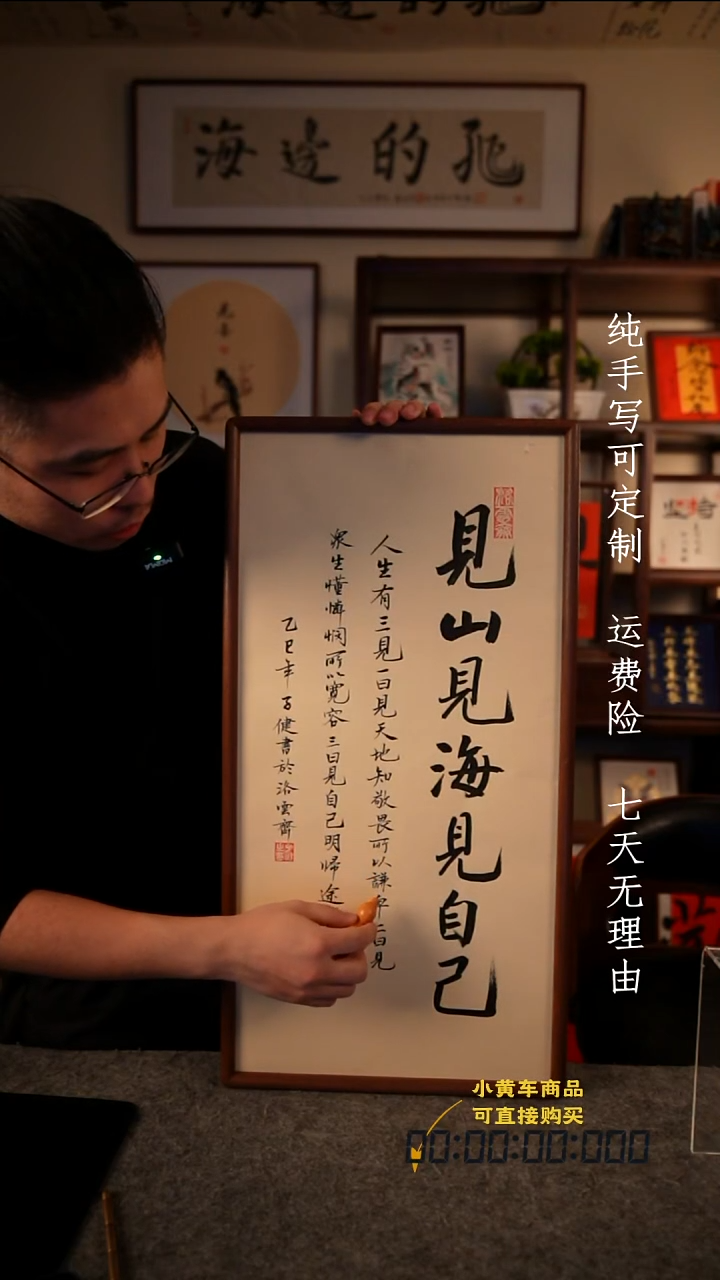 海邊的
見山見海見自己
人生有三見一曰見天地知敬畏所以謙卑二曰見
眾生懂憐憫所以寬容三曰見自己明歸途
乙巳年
健書於洛雲齋
纯手写可定制 运费险 七天无理由
小黄车商品
可直接购买
00:00:00:000